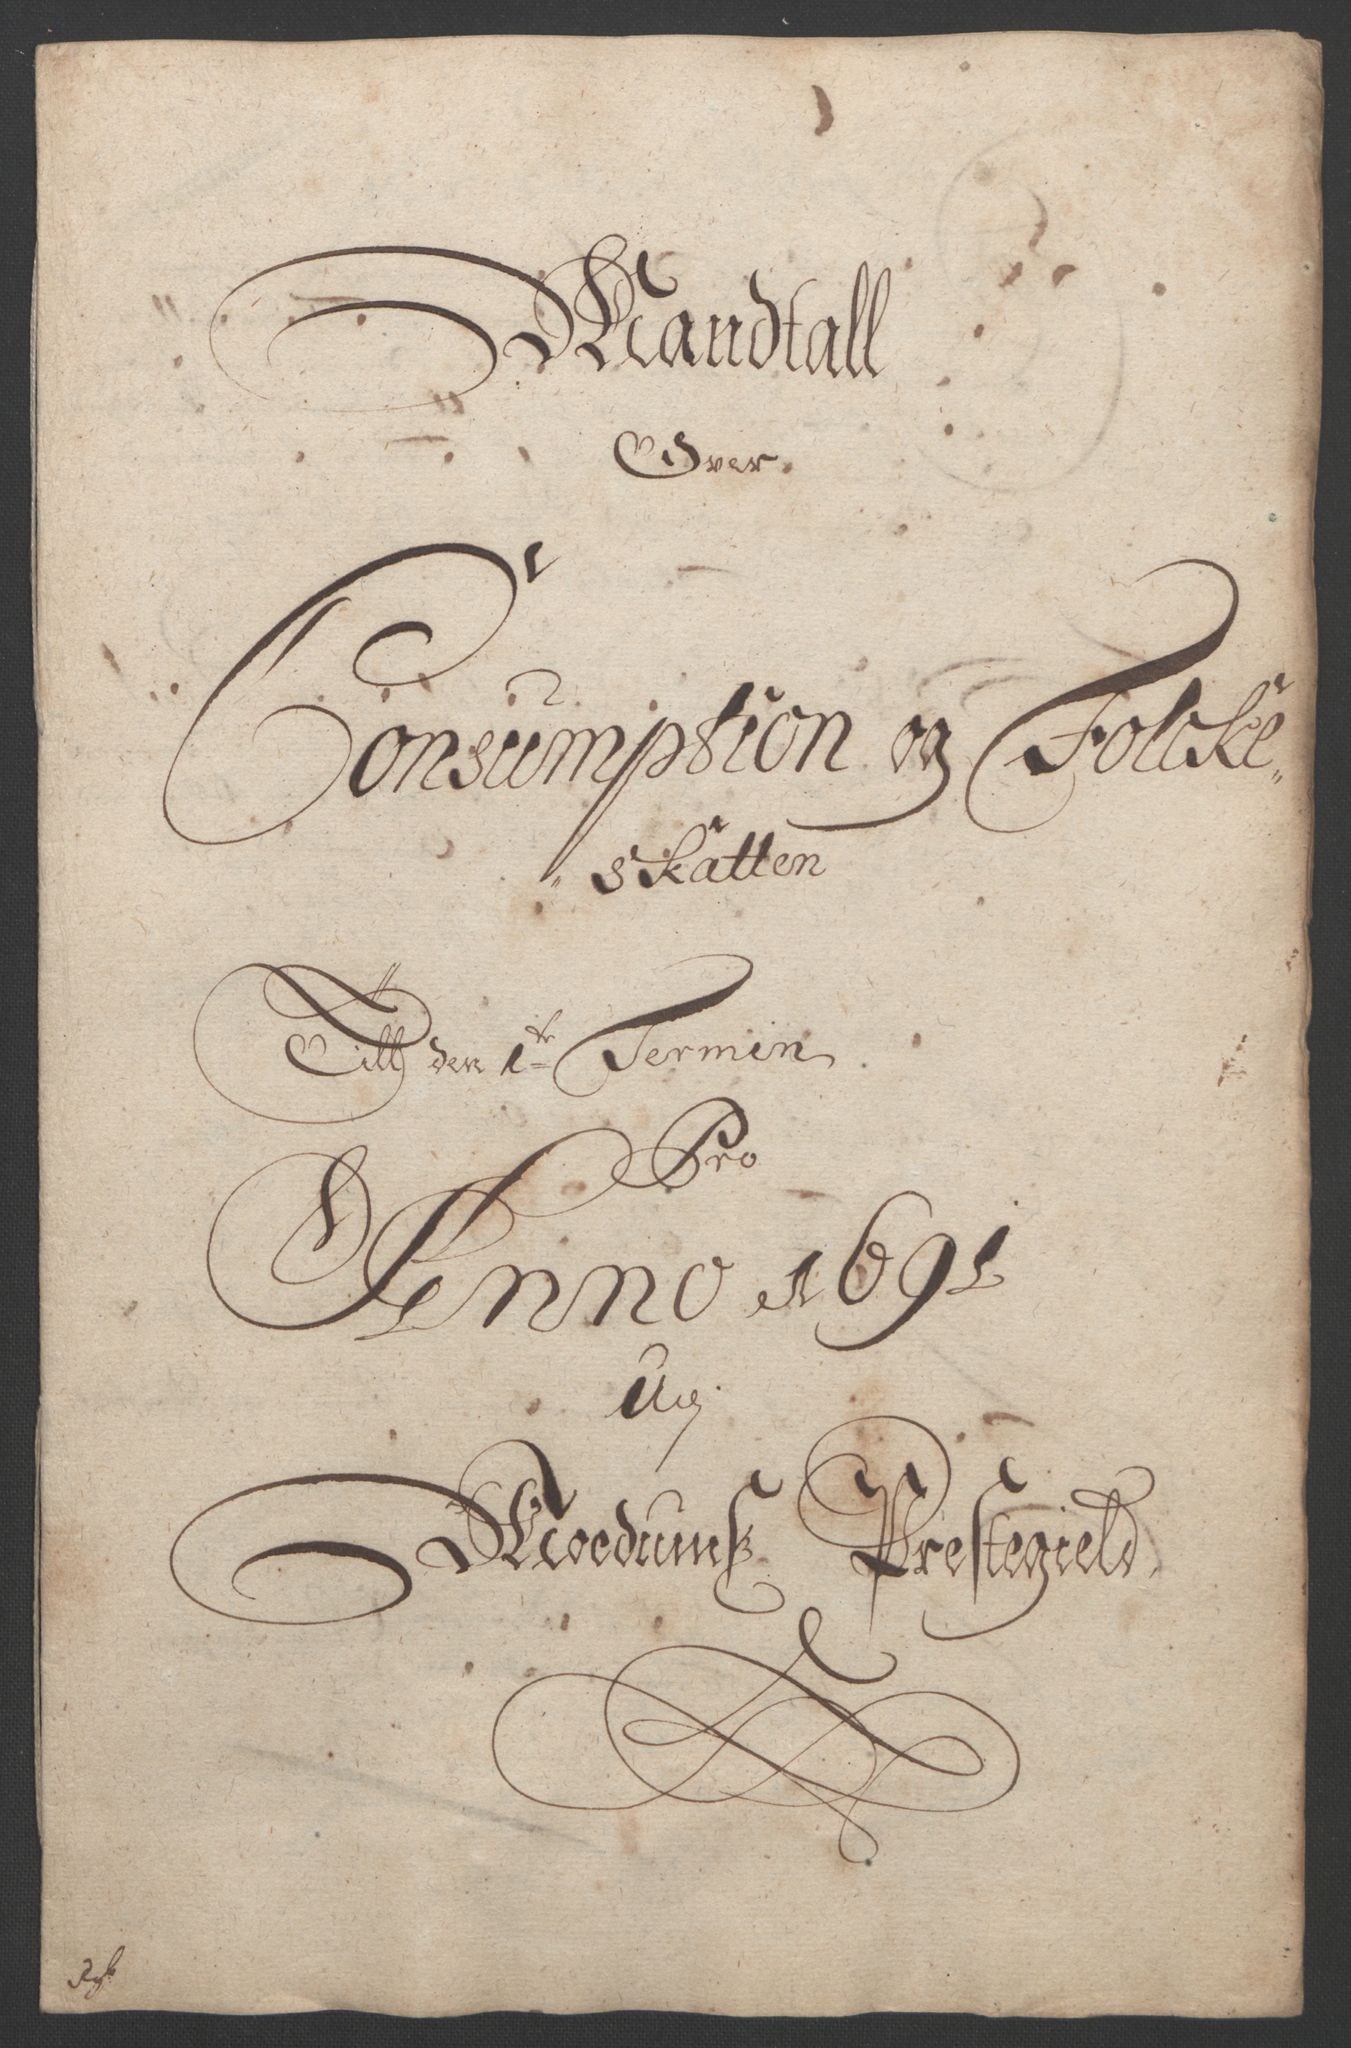 Mandtall
Over
Consumption og Folcke"
"skatten
Till den 1te Termin
Pro
Anno 1691
Ug
Moedums Prestegield